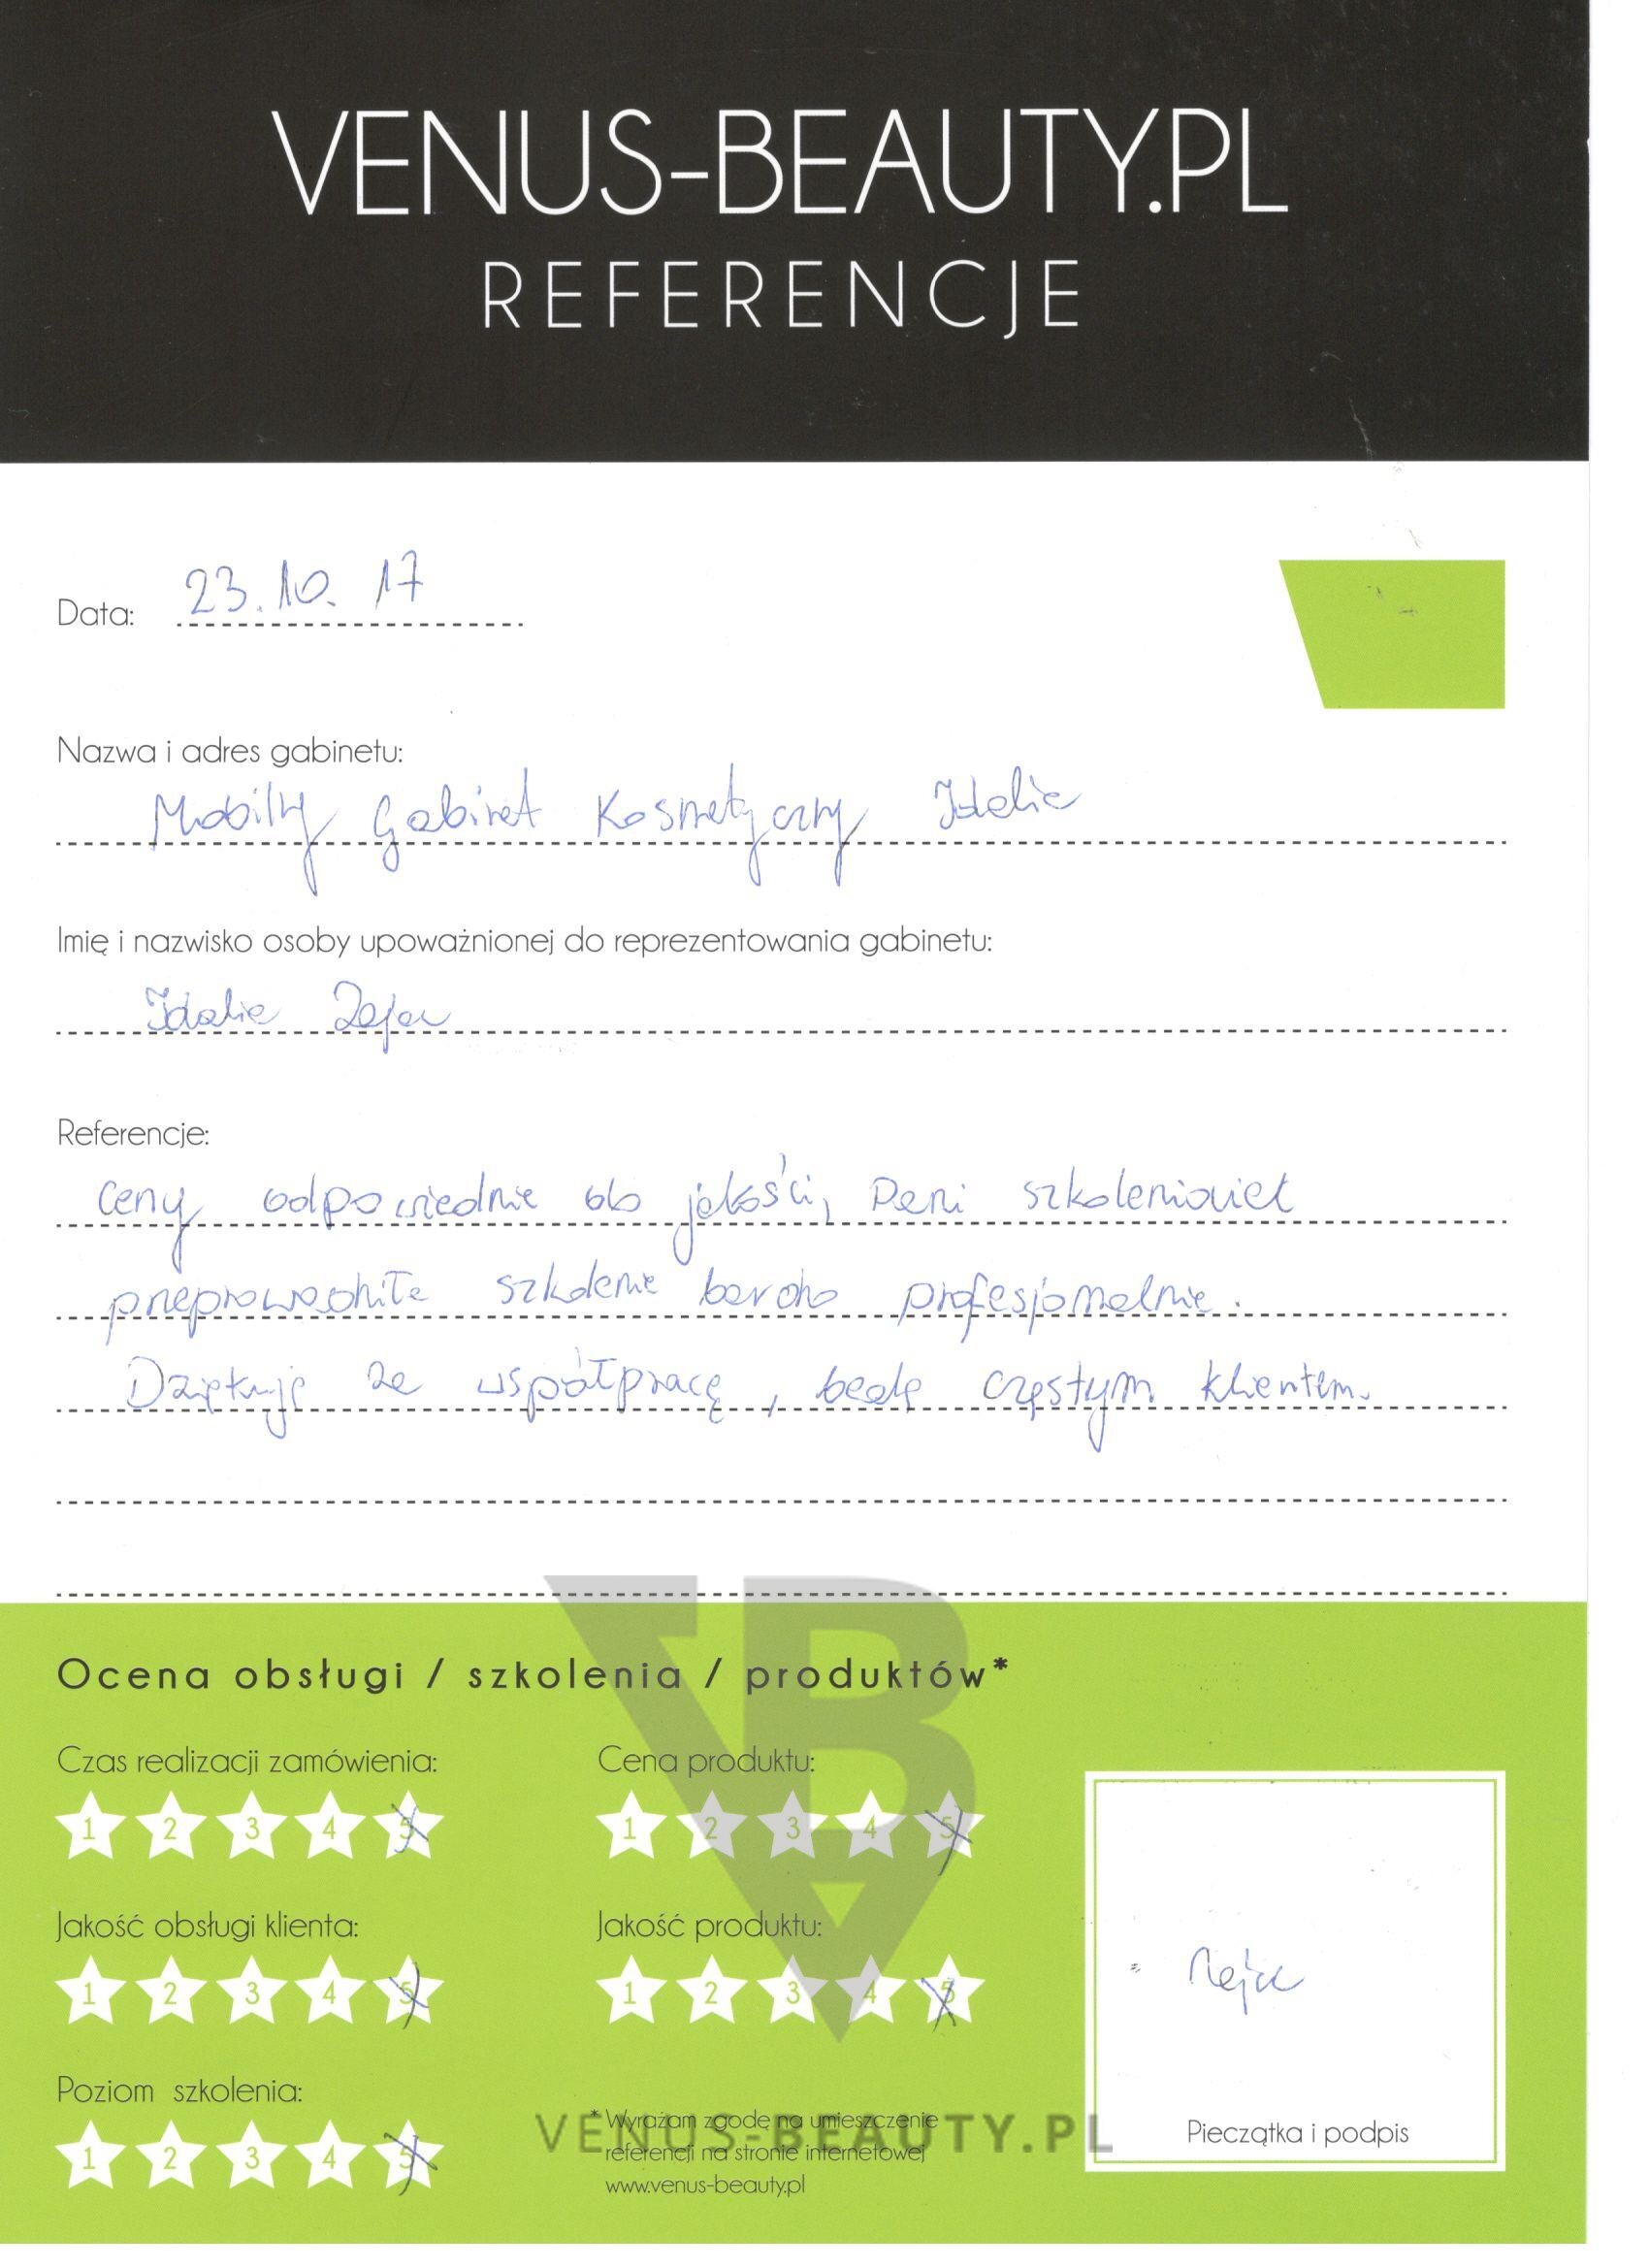 VENUS-BEAUTY.PL
REFERENCJE
Data: 23.10.17
Nazwa i adres gabinetu:
Mobilny Gabinet Kosmetyczny Idalia
Imię i nazwisko osoby upoważnionej do reprezentowania gabinetu:
Idalia
Referencje:
Ceny odpowiednie do jakości, Pani szkoleniowiec
przeprowadziła szkolenie bardzo profesjonalnie.
Dziękuję za współpracę, będę częstym klientem.
Ocena obsługi / szkolenia / produktów*
Czas realizacji zamówienia:
1 2 3 4 5
Cena produktu:
1 2 3 4 5
Jakość obsługi klienta:
1 2 3 4 5
Jakość produktu:
1 2 3 4 5
Poziom szkolenia:
1 2 3 4 5
* Wyrażam zgodę na umieszczenie
referencji na stronie internetowej
www.venus-beauty.pl
Pieczątka i podpis
VBA
VENUS-BEAUTY.PL